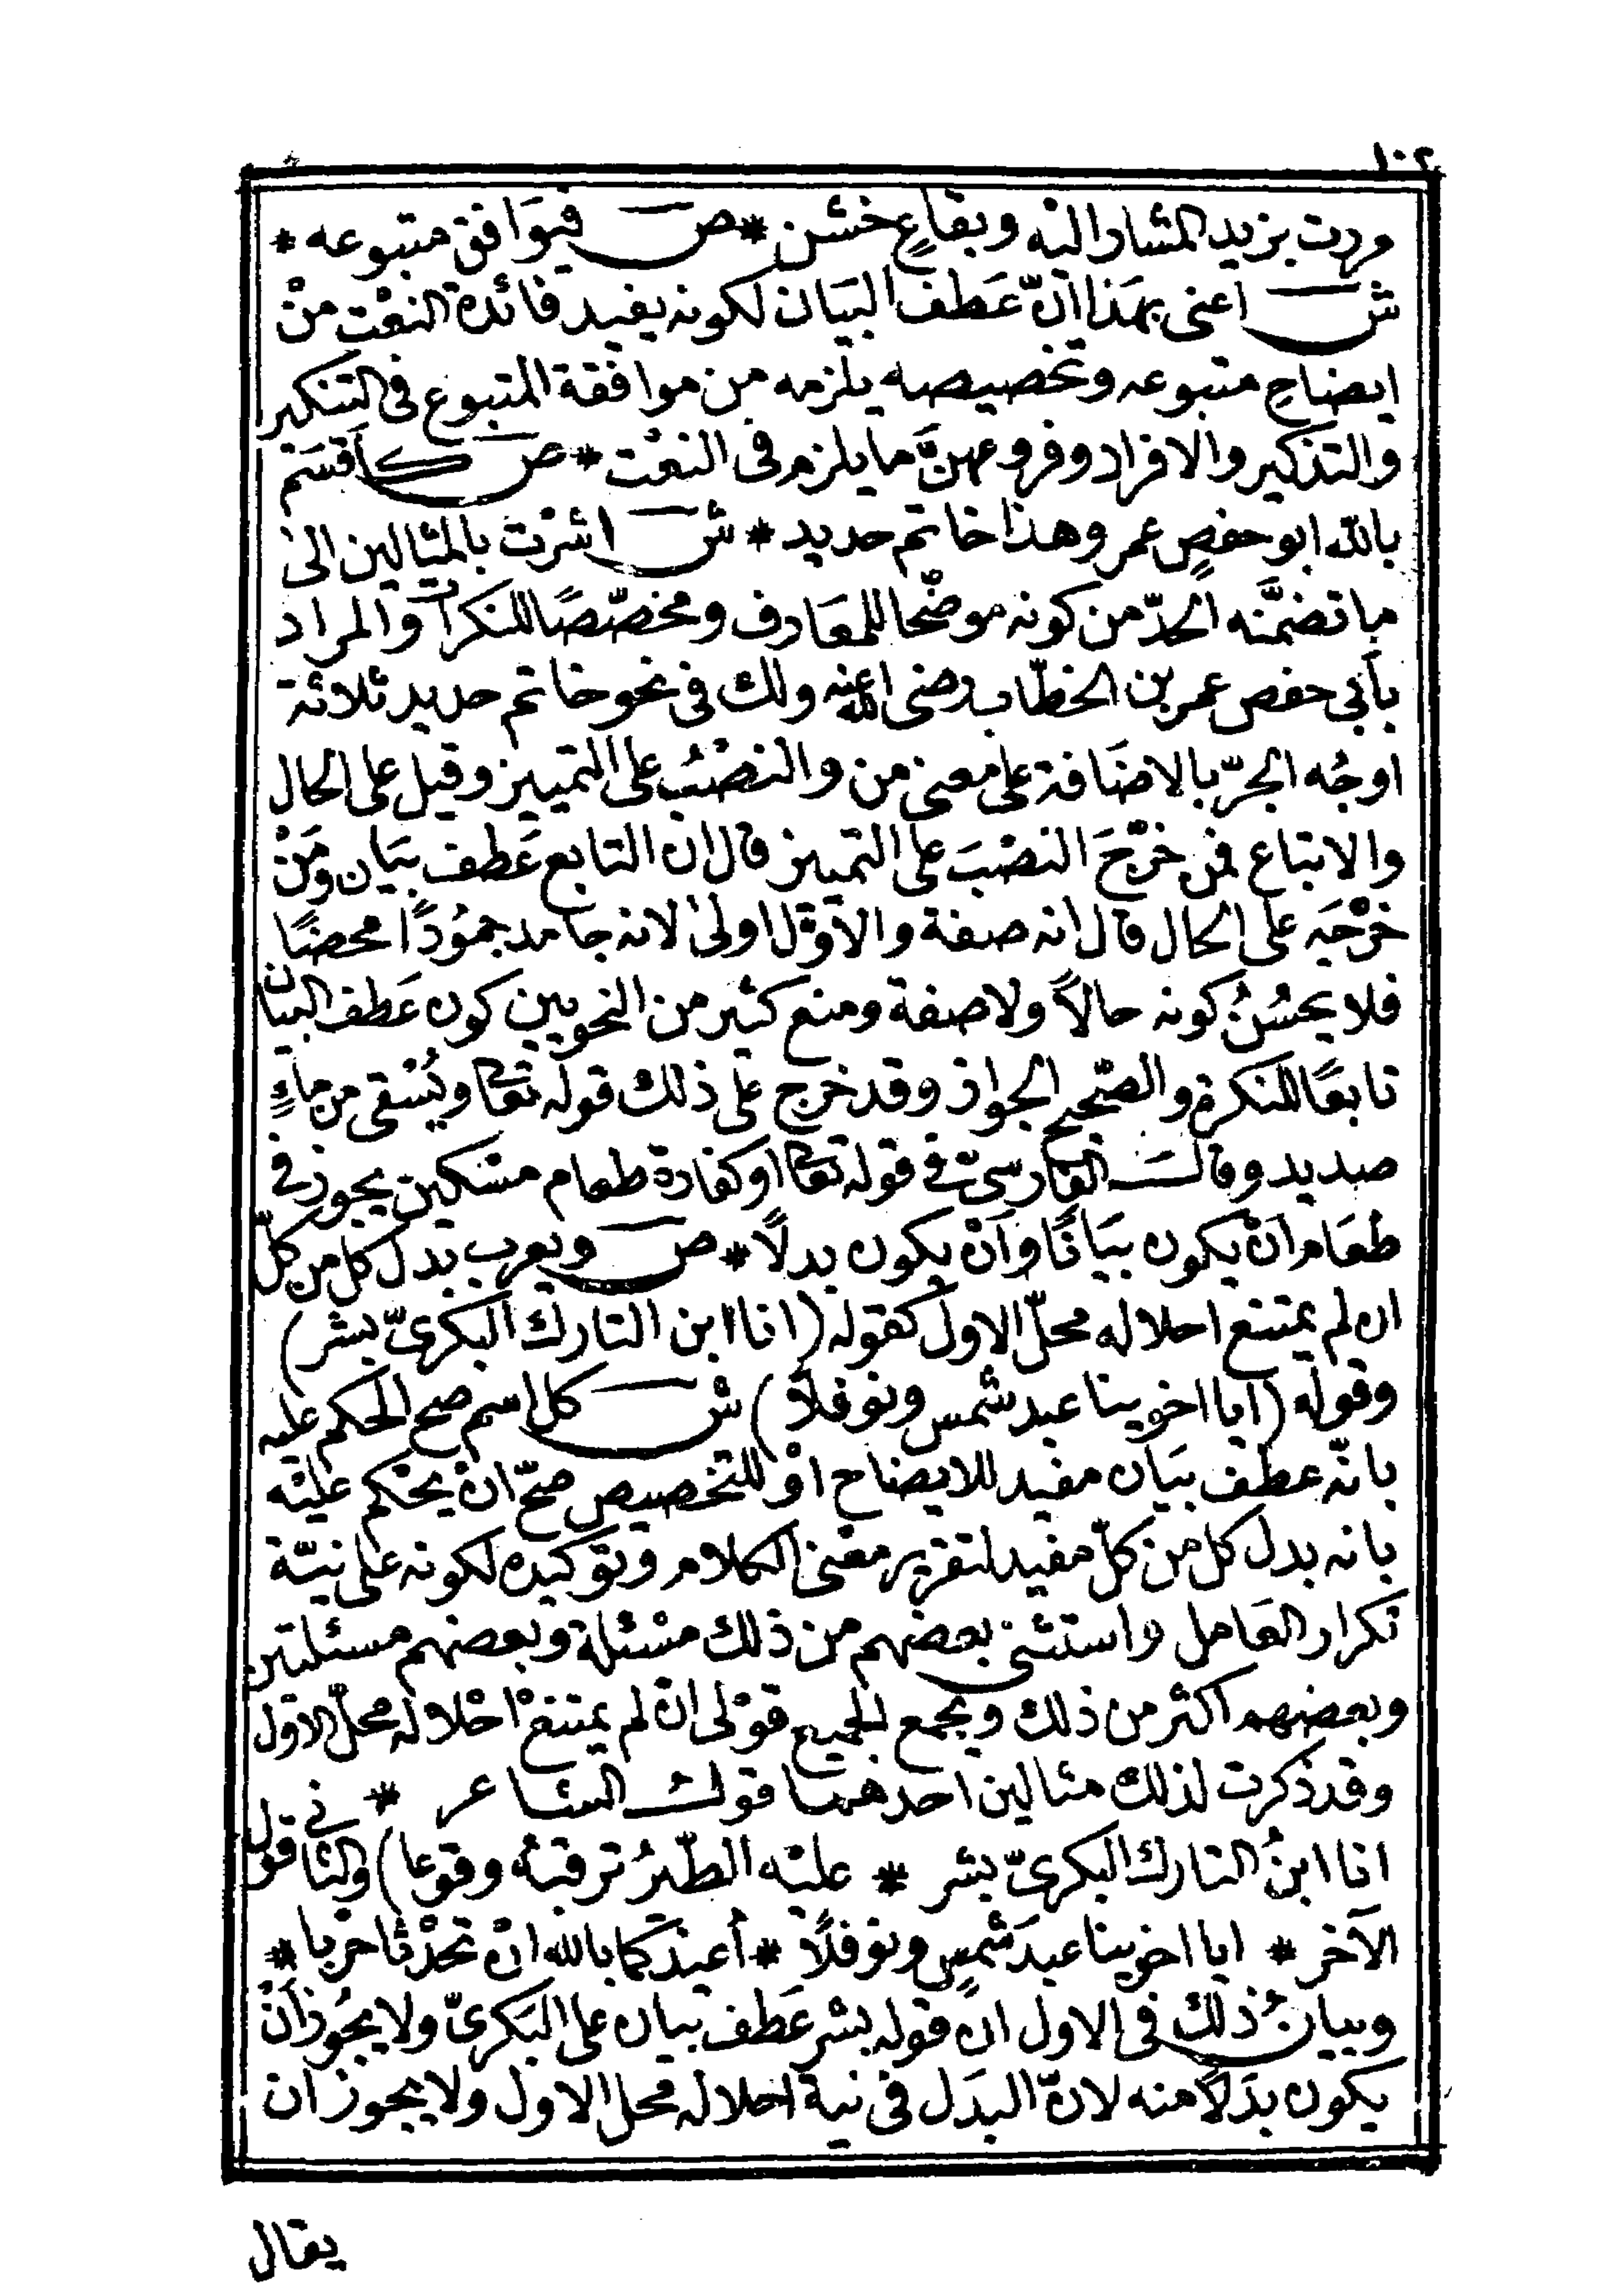 ١٠٢
مررت بزيد المشار اليه وبقاعٍ خشن * ص فيوَافق متبوعه *
ش اعنى بهَذا انّ عَطف البيَان لكونه يفيد فائدة النعْت منْ
ايضاحِ متبوعه وتخصيصه يلزمه من موافقة المتبوع فى التنكير
والتذكير والافراد وفروعهنَّ ما يلزم فى النعْت * ص كاَقسَم
بالله ابو حفصٍ عمر وهذا خاتم حديد * ش اشرْت بالمثالين الى
ما تضمَّنه الحدّ من كونه موضّحا للمعَارف ومخصّصًا للنكرات والمراد
بأبي حفص عمر بن الخطّاب رضى الله عنه ولك فى نحو خاتم حديد ثلاثة
اوجُه الجرّ بالاضَافة على معنى من والنصْبُ على التمييز وقيل على الحال
والاتباع فمن خرّجَ النصْبَ على التمييز قال ان التابع عَطف بيَان ومَنْ
خرّجَه على الحال قال انه صفة والاوّل اولى لانه جامد جموُدًا محضًا
فلا يحسُنُ كونه حالاً ولا صفة ومنع كثير من النحويين كون عَطف البيان
تابعًا للنكرة والصّحيح الجواز وقد خرج على ذلك قوله تعا ويُسْقى من ماءٍ
صديد وقالَ الفارسىّ فى قوله تعا او كفارة طعام مسكين يجوز فى
طعَام اَنْ يكون بيَانًا واَنْ يكون بدلاً * ص ويعرب بدل كل من كلّ
ان لم يمتنع احلاله محلّ الاول كقوله (انا ابن التارك البكرىّ بشر)
وقوله (ايا اخوينا عبد شمس ونوفلا) ش كل اسم صح الحكم عليه
بانّه عطف بيَان مفيد للايضاح اوْ للتخصيص صحّ انْ يحْكم عليْه
بانه بدل كل من كلّ مفيد لتقرير معْنى الكلام وتوكيده لكونه على نيّة
تكرار العَامل واستثنى بعضهم من ذلك مسْئلة وبعضهم مسئلتين
وبعضهم اكثر من ذلك ويجمع الجميع قوْلى انْ لم يمتنعْ احْلاله محلّ الاول
وقد ذكرت لذلك مثالين احدهما قول الشاعر *
انا ابنُ التارك البكرىّ بشر * عليْه الطّيرُ ترقبُه وقوعا) والثانى قول
الآخر * ايا اخوينا عبدَ شمسٍ ونوفلًا * أعيذكما بالله انْ تحْدثا حرْبا *
وبيانُ ذلك فى الاول انّ قوله بشر عَطف بيان على البَكرىّ ولا يجُوز اَنْ
يكون بدَلًا منه لانّ البدَل فى نية احلاله محل الاول ولا يجوز ان
يقال